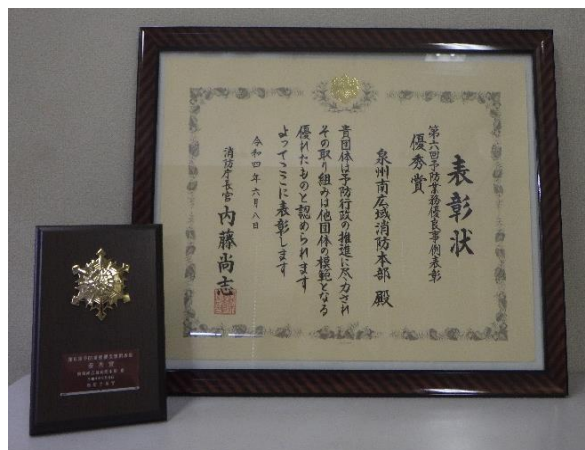 表彰状
第六回予防業務優良事例表彰
優秀賞
泉州南広域消防本部 殿
貴団体は予防行政の推進に尽力され
その取り組みは他団体の模範となる
優れたものと認められます
よってここに表彰します
令和四年六月八日
消防庁長官 内藤尚志
優秀賞